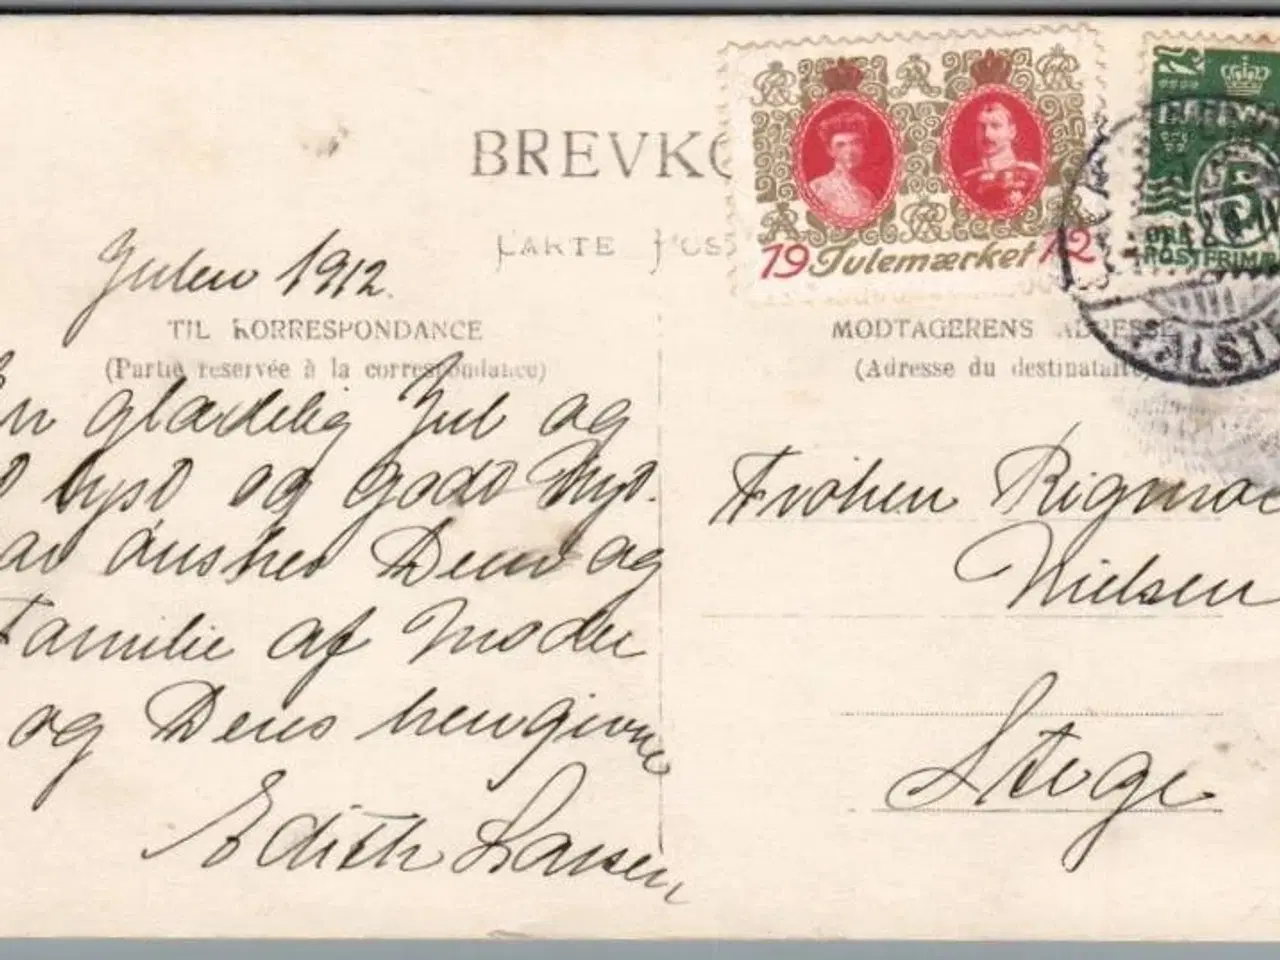 BREVKO
CARTE POS
19 Julemærket 12
5
ØRE
POSTFRIM
Julen 1912.
TIL KORRESPONDANCE
(Partie reservée à la correspondance)
MODTAGERENS ADRESSE
(Adresse du destinataire
n glædelig Jul og
lyst og godt Nyt-
aar ønskes Dem og
Familie af Moder
og Deres hengivne
Edith Larsen
Frøken Rigmor
Nielsen
Stege